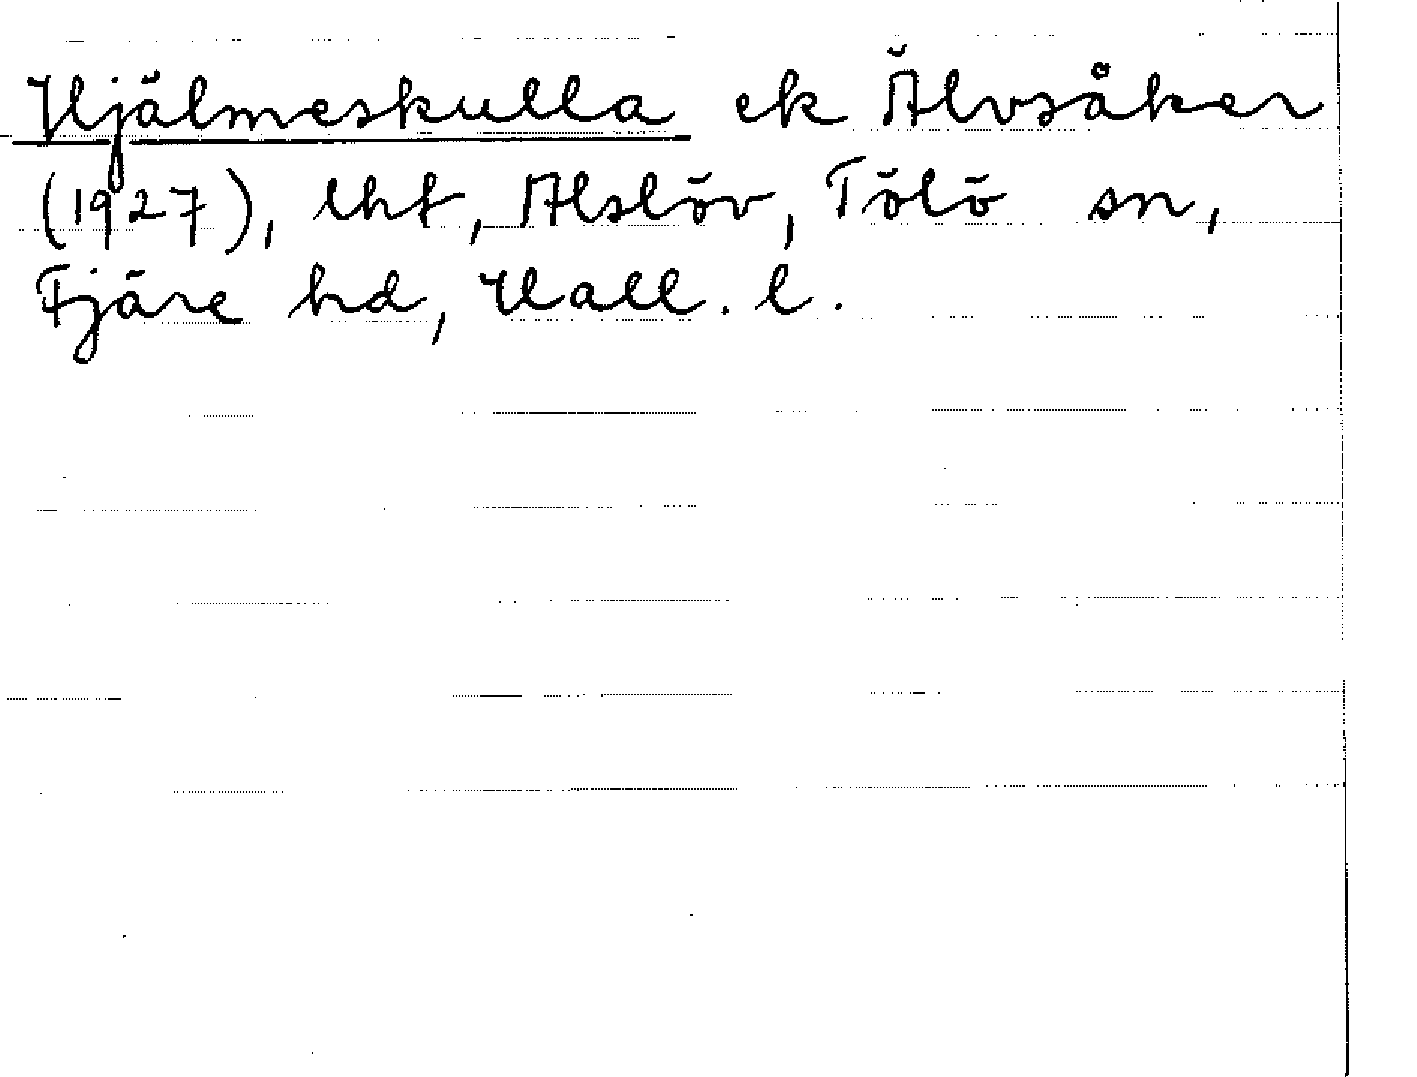 Hjälmeskulla ek Älvsåker
(1927), lht, Alslöv, Tölö sn,
Fjäre hd, Hall. l.